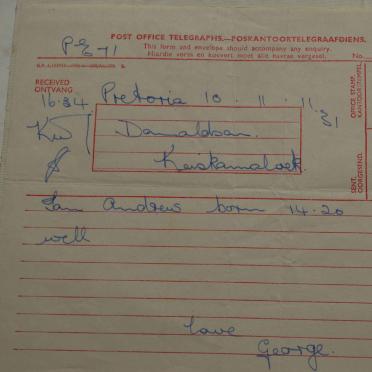 P-E-11
POST OFFICE TELEGRAPHS.—POSKANTOORTELEGRAAFDIENS.
This form and envelope should accompany any enquiry.
Hierdie vorm en koevert moet alle navrae vergesel.
No.
RECEIVED
ONTVANG
16.34 Pretoria 10 . 11 . 11.31
OFFICE STAMP.
KANTOOR-STEMPEL.
Donaldson.
Keiskamahoek.
SENT.
OORGESEIND.
Ian Andrew born 14.20
well
Love
George.